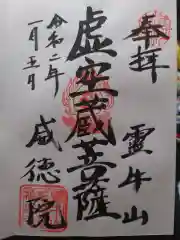 奉拝
霊牛山
虚空蔵菩薩
令和二年
一月五日
咸徳院